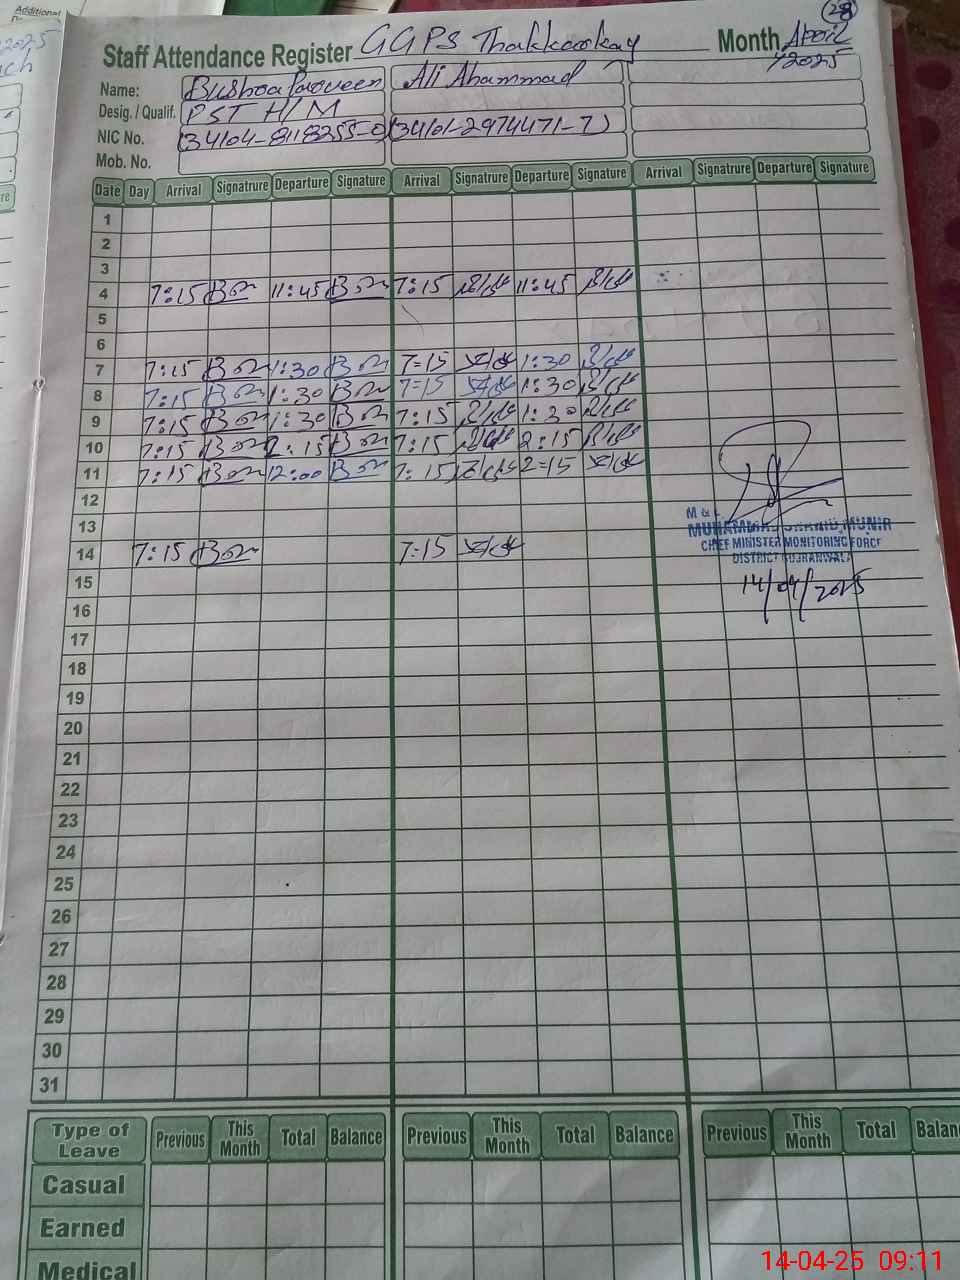 Additional
2025
Staff Attendance Register GGPS Thakkarkay Month April 28
/2025
Name: Bushra Parveen Ali Ahammad
Desig./ Qualif. PST H/M
NIC No. (34104-8118255-0) (34101-2974471-7)
Mob. No.
Date Day Arrival Signatrure Departure Signature Arrival Signatrure Departure Signature Arrival Signatrure Departure Signature
1
2
3
4 7:15 11:45 7:15 11:45
5
6
7 7:15 1:30 7=15 1:30
8 7:15 1:30 7=15 1:30
9 7:15 1:30 7:15 1:30
10 7:15 2:15 7:15 2:15
11 7:15 12:00 7:15 2=15
12
13
M & E
MUHAMMAD SHAHID MUNIR
CHIEF MINISTER MONITORING FORCE
DISTRICT GUJRANWALA
14 7:15 7:15
14/04/2025
15
16
17
18
19
20
21
22
23
24
25
26
27
28
29
30
31
Type of Leave Previous This Month Total Balance Previous This Month Total Balance Previous This Month Total Balan
Casual
Earned
Medical
14-04-25 09:11